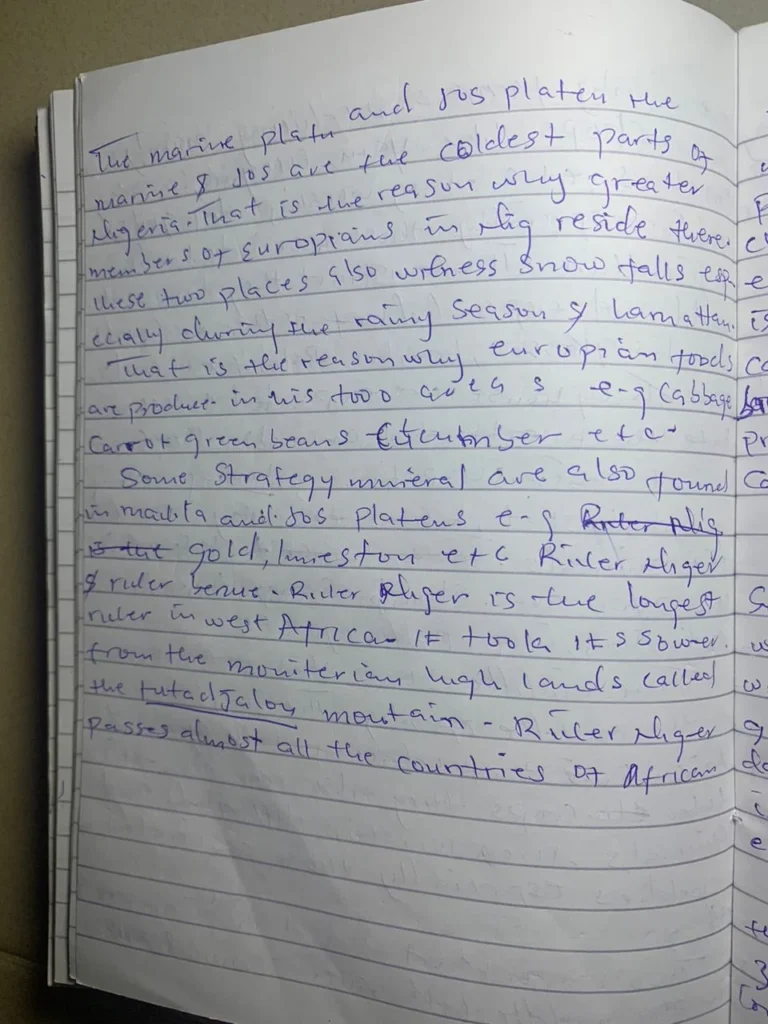 The marine platu and Jos platen the
marine & Jos are the coldest parts of
Nigeria. That is the reason why greater
members of Europians in Nig reside there.
these two places also witness snow falls esp-
ecially during the rainy season & hamattan.
That is the reason why europian foods
are produce in his tooo areas s e-g Cabbage
Carrot green beans cucumber etc-
Some Strategy mineral are also found
in and Jos platens e-g River Nig
is the gold, limeston etc River Niger
& river benue. River Niger is the longest
river in west Africa- It took its sower.
from the moniterian high lands called
the futadjalon montain - River Niger
Passes almost all the countries of African